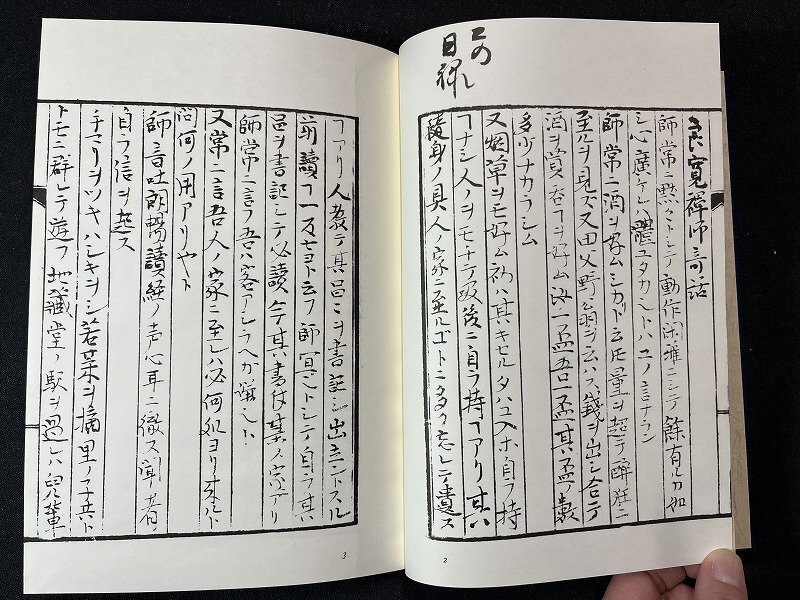 この
目録
良寛禅師奇話
師常ニ黙々トシテ動作閑雅ニシテ餘有ルカ如
シ心廣ケレハ體ユタカ也トハコノ言ナラン
師常ニ酒ヲ好ムシカトモ量ヲ超テ酔狂ニ
至ルヲ見ズ又田父野翁ヲ云ハス銭ヲ出シ合テ
酒ヲ買呑コヲ好ム汝一盃吾一盃其盃ノ数
多少ナカラシム
又烟草ヲモ好ム初ハ其キセルタハコ入ホ自ラ持
コナシ人ノヲモテ吸後ニ自ラ持コアリ其ハ
随身ノ具人ノ家ニ至ルゴトニ多ク忘レテ遺ス
コアリ人教テ其邑ニヲ書記シ出立ントスル
前讀コ一及セヨト云フ師冥々トシテ自ラ其
邑ヲ書記シテ必讀今其書伎某ノ家アリ
師常ニ言フ吾ハ客アシラヘガ嫌シト
又常ニ言吾人ノ家ニ至レハ必何処ヨリオルト
問何ノ用アリヤト
師音吐朗暢讀経ノ声心耳ニ徹ス聞者
自ラ信ヲ起ス
手マリヲツキハシキヲシ若菜ヲ摘里ノ子共ト
トモニ群レテ遊フ地蔵堂ノ駅ヲ過レハ児輩
2
3